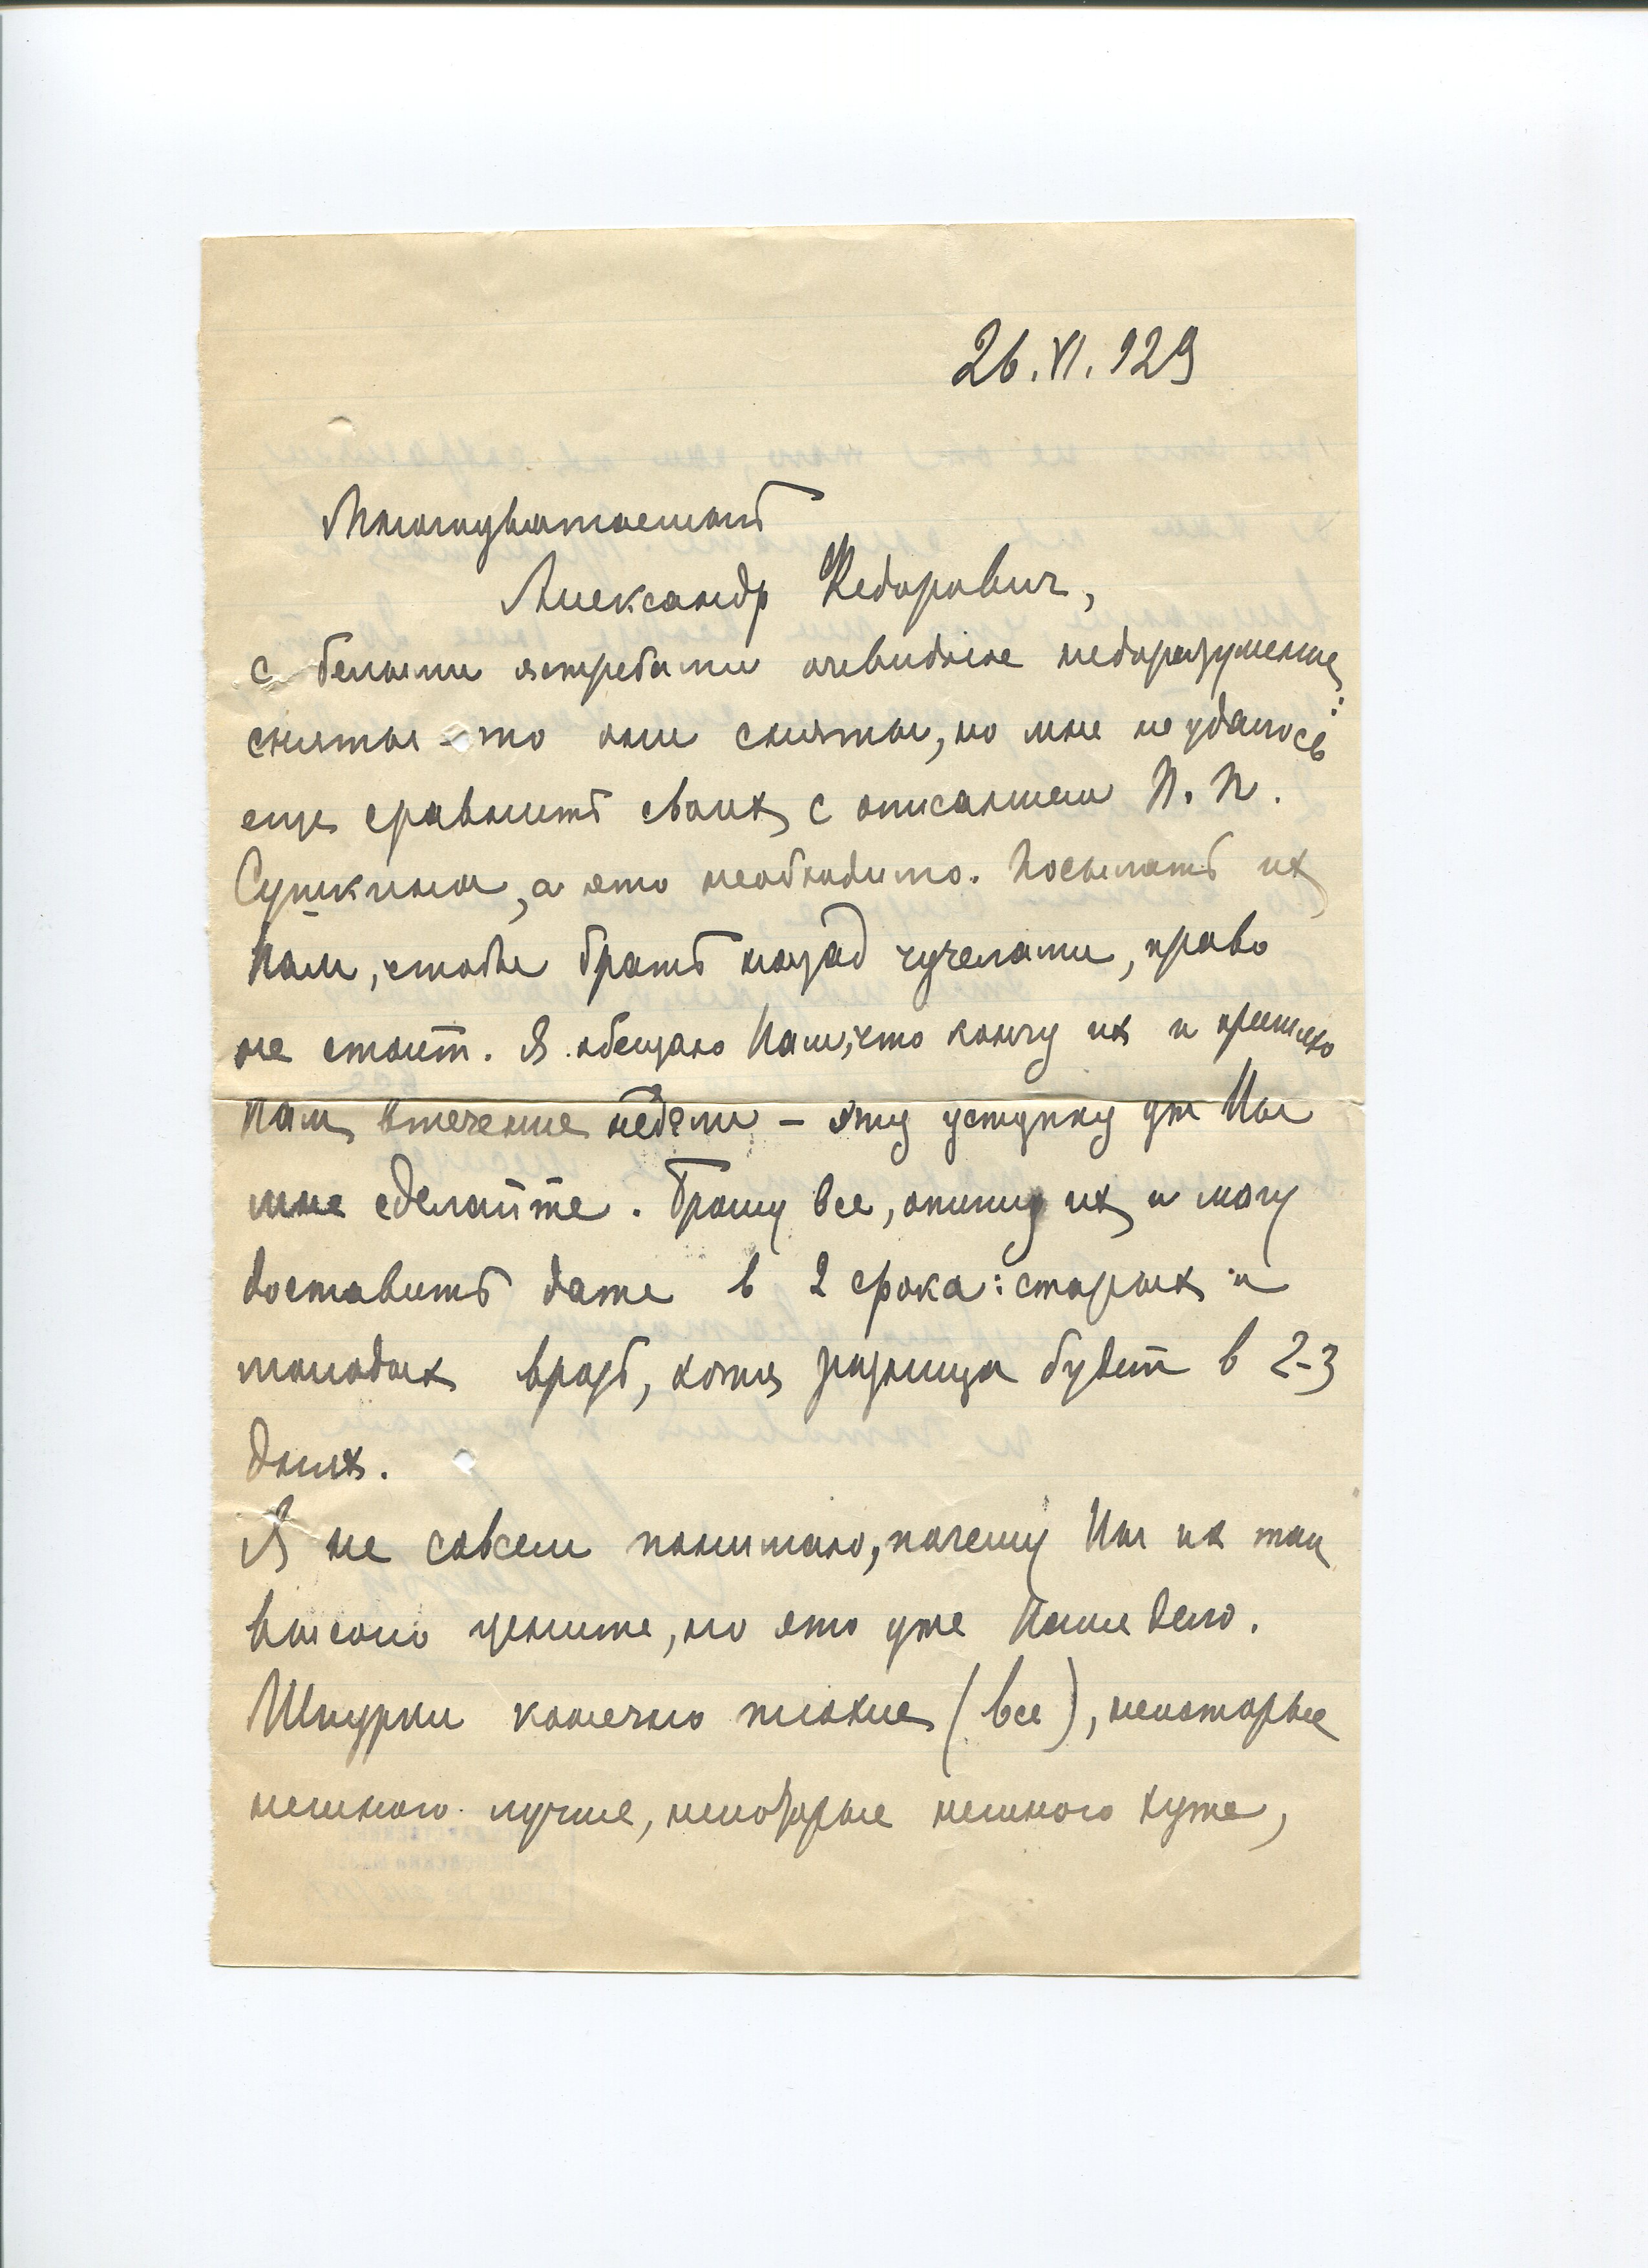 26.VI.929
Многоуважаемый
Александр Федорович,
с белыми ястребами очевидное недоразумение:
сняты-то они сняты, но мне не удалось
еще сравнить своих с описанием П. П.
Сушкина, а это необходимо. Посылать их
Вам, чтобы брать назад чучелами, право
не стоит. Я обещаю Вам, что кончу их и пришлю
Вам в течение недели – эту уступку уж Вы
мне сделайте. Брошу все, опишу их и могу
доставить даже в 2 срока: старых и
молодых врозь, хотя разница будет в 2-3
днях.
Я не совсем понимаю, почему Вы их так
высоко цените, но это уже Ваше дело.
Шкурки конечно плохие (все), некоторые
немного лучше, некоторые немного хуже,